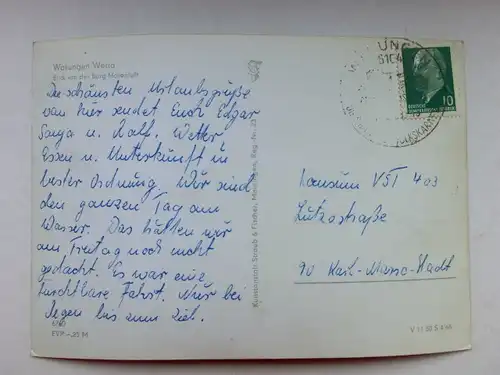 Wasungen Werra
Blick von der Burg Maienluft
Die schönsten Urlaubsgrüße
von hier sendet Euch Edgar
Sonja u. Ralf. Wetter
Essen u. Unterkunft in
bester Ordnung. Wir sind
den ganzen Tag am
Wasser. Das hätten wir
am Freitag noch nicht
gedacht. Es war eine
furchtbare Fahrt. Nur bei
Regen bis zum Ziel.
EVP –,25 M
Kunstanstalt Straub & Fischer, Meiningen, Reg.-Nr.
UNG
6104
10
Konsum VST 403
Lützostraße
90 Karl-Marx-Stadt
V 11 50 S 4/68